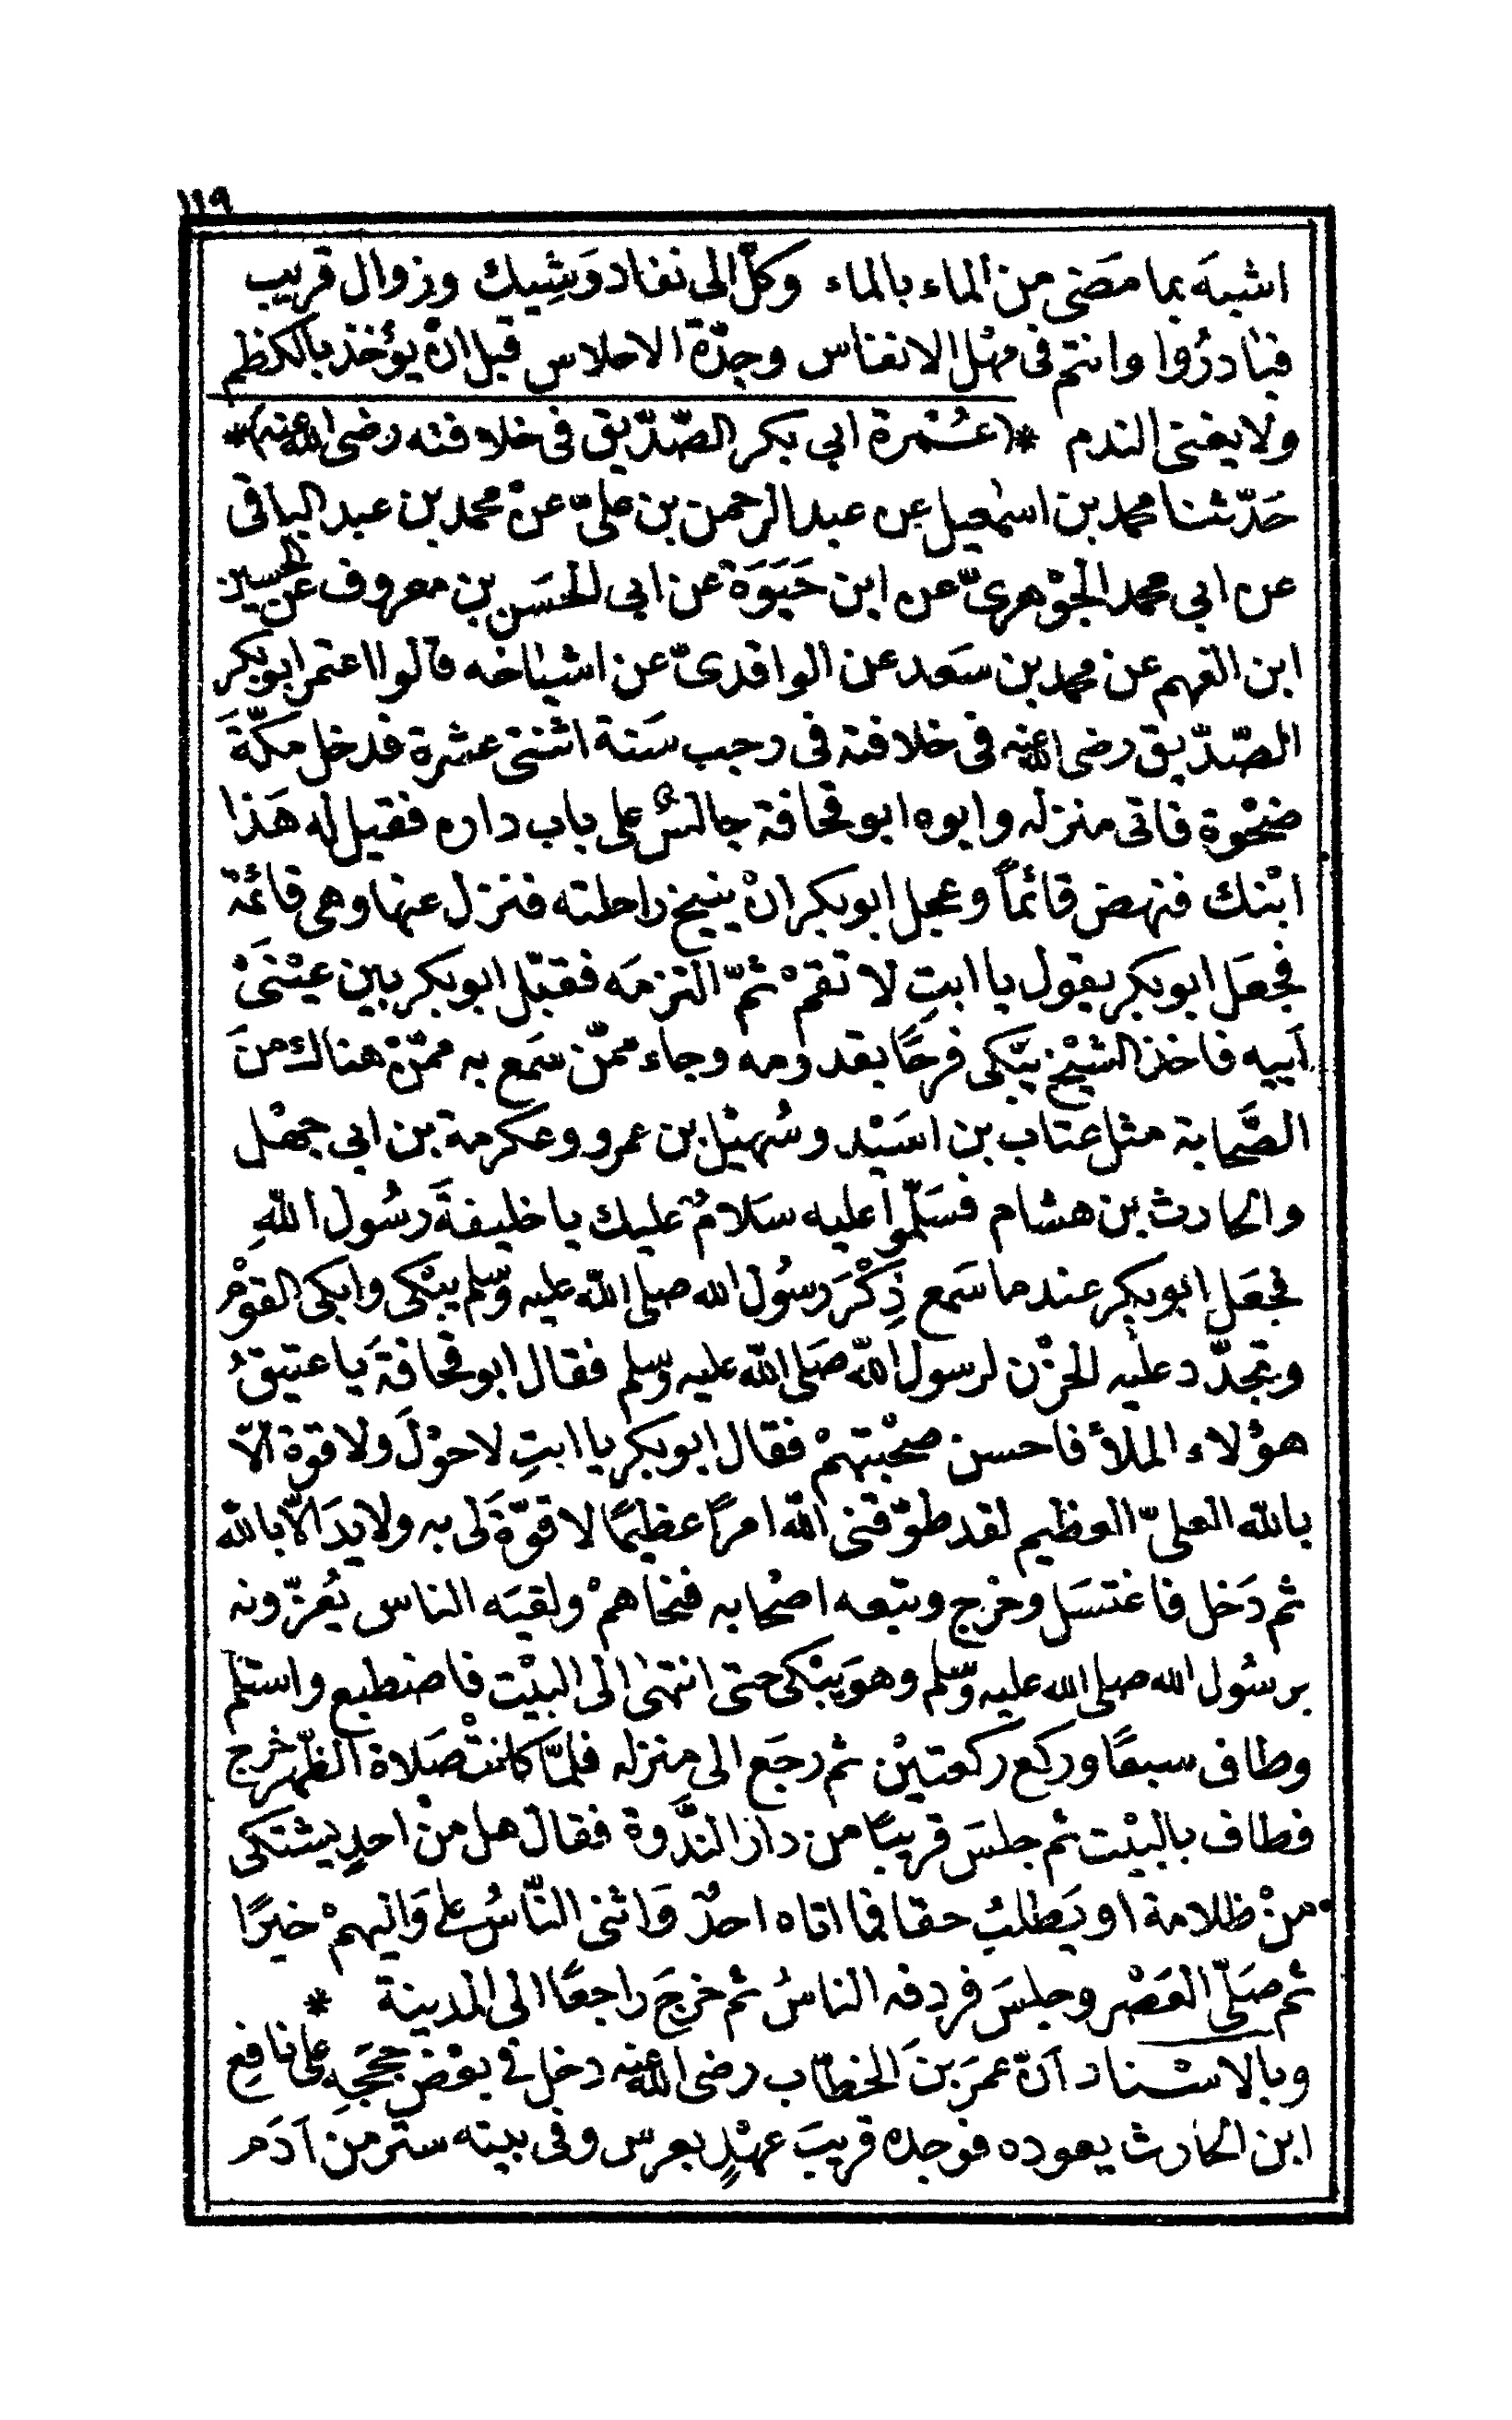 ١١٩
اشبهَ بما مَضَى من الماء بالماء وكلّ الى نفاد وَشِيك وزوال قريب
فبادرُوا وانتم فى مهْل الانفاس وجِدّة الاحلاس قبل انْ يؤخذ بالكظم
ولا يغنى الندم *(عُـمْرة ابى بكر الصّدّيق فى خلافته رضى الله عنه)*
حَدّثنا محمد بن اسمٰعيل عن عبد الرحمن بن علىّ عنْ محمد بن عبد الباقى
عن ابى محمد الجوْهرىّ عن ابن حَيَوَة عن ابى الحَسَن بن معروف عن الحسين
ابن الفهم عن محمد بن سَعد عن الواقدىّ عن اشياخه قالوا اعتمر ابو بكر
الصّدّيق رضى الله عنه فى خلافته فى رجب سَنة اثنتى عشرة فدخل مكّةَ
ضحْوة فاتى منزله وابوه ابو قحافة جالسٌ على باب داره فقيل له هَذا
ابْنك فنهض قائماً وعجل ابو بكر انْ ينيخ راحلته فنزل عنها وهى قائمَة
فجعَل ابو بكر يقول يا ابتِ لا تقمْ ثمّ التزمَه فقبّل ابو بكر بين عيْنَىْ
اَبيه فاخذ الشيْخ يبَكى فرحًا بقدومه وجاء ممّن سَمع به ممّنْ هناك منَ
الصَّحابة مثل عتاب بن اسَيْد وسُهيْل بن عمرو وعكرمة بن ابى جهْل
والحارث بن هشام فسَلّموا عليه سَلامٌ عليك يا خليفةَ رسُول اللهِ
فجعَل ابو بكر عند ما سَمع ذِكْرَ رسُول الله صلى الله عليه وسّلم يبْكى وابكى القوْم
وتجدّد عليه الحزْن لرسول الله صَلى الله عليه وسلم فقال ابو قحافةَ يا عتيقُ
هؤلاء الملأ فاحسن صحْبتهمْ فقال ابو بكر يا ابتِ لا حوْلَ ولا قوة الّا
بالله العلىّ العظيم لقد طوّقنى الله امرًا عظيمًا لا قوّةَ لى به ولا يدَ الّا بالله
ثم دَخل فاغتسَل وخرج وتبعه اصْحابه فنحاهمْ ولقيَه الناس يُعزّونه
برسُول الله صلى الله عليه وسّلم وهوَ يبْكى حتى انتهٰى الى البيْت فاضطبع واستلم
وطاف سبعًا وركع ركعتيْن ثم رجَع الى منزله فلمّا كانتْ صَلاة الظّهر خرج
فطاف بالبيْت ثم جلسَ قريبًا من دار النَّدْوة فقال هل منْ احدٍ يشتكى
منْ ظلامة او يَطلبُ حقا فما اتاه احدٌ وَاثنى النّاسُ على وَاليهمْ خيرًا
ثم صَلّى العَصْر وجلسَ فردفه الناسُ ثم خرجَ راجعًا الى المدينة *
وبالاسْناد اَنّ عمَرَ بنَ الخطّاب رضى الله عنه دخل فى بعْض حججَه على نافِع
ابن الحارث يعوده فوجده قريبَ عهْدٍ بعرس وفى بيته ستر من اَدَم